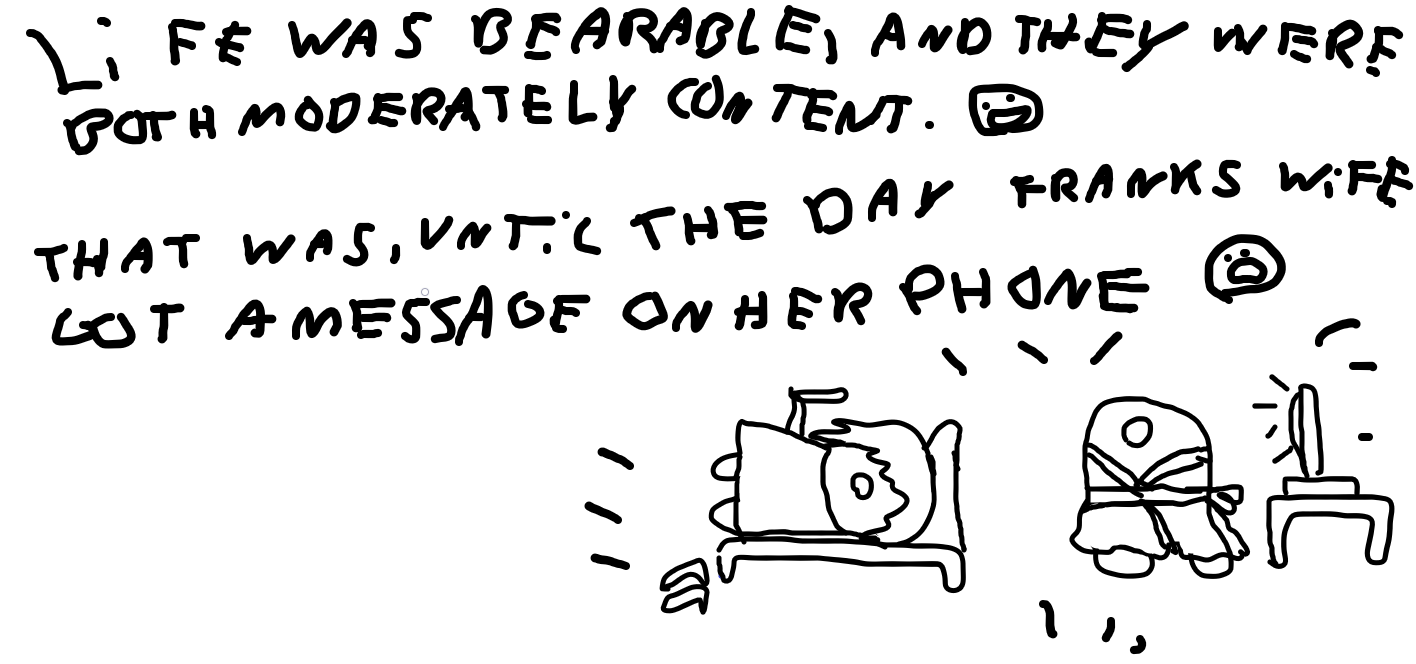 LiFE WAS BEARABLE, AND THEY WERE
BOTH MODERATELY CONTENT.
THAT WAS, UNTiL THE DAY FRANKS WiFE
GOT A MESSAGE ON HER PHONE